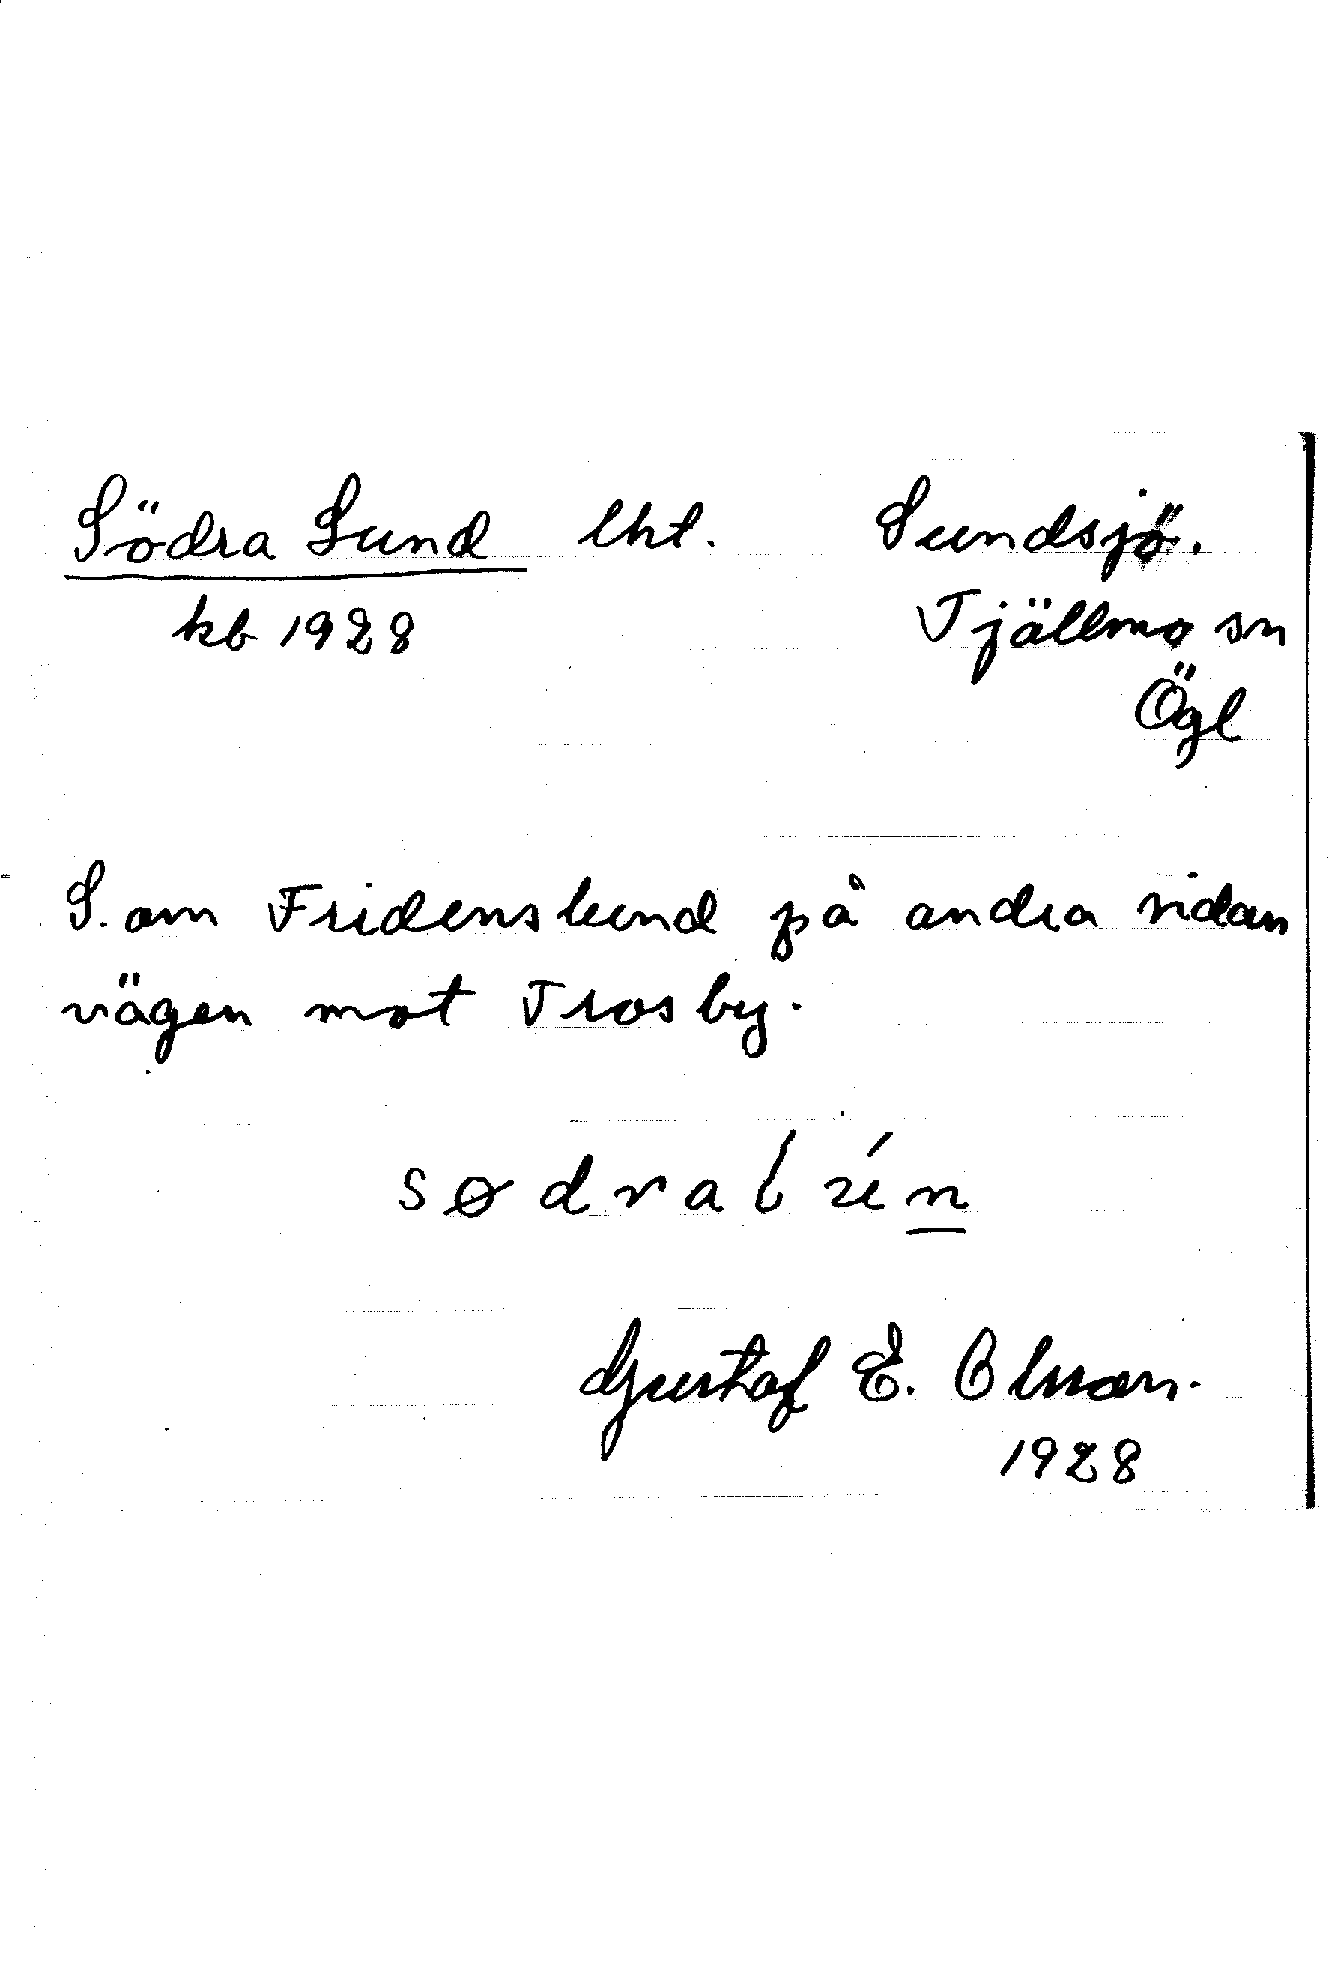 Södra Lund lht. Sundsjö.
kb 1928 Tjällmo sn
Ögl
S. om Fridenslund på andra sidan
vägen mot Trosby.
Gustaf E. Olsson.
1928